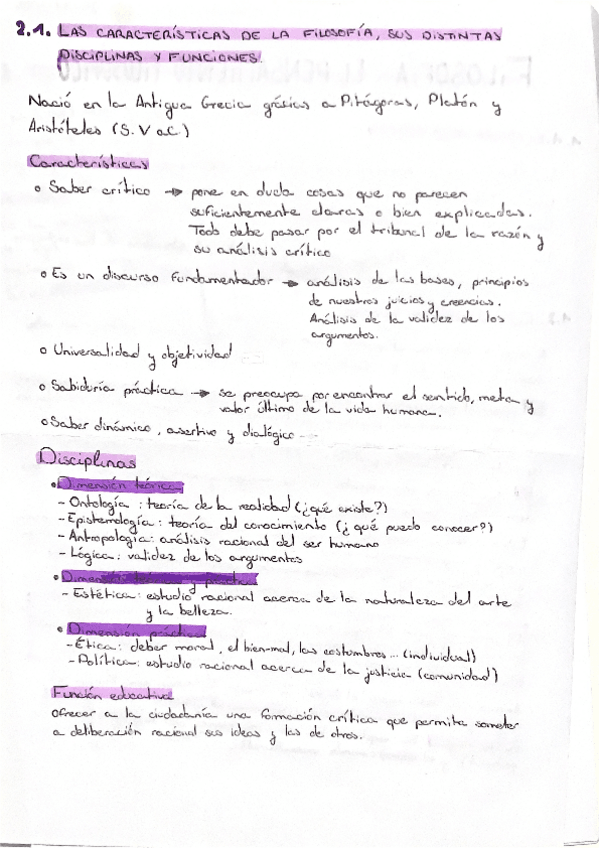 2.1. LAS CARACTERÍSTICAS DE LA FILOSOFÍA, SUS DISTINTAS
DISCIPLINAS Y FUNCIONES.
Nació en la Antigua Grecia gracias a Pitágoras, Platón y
Aristóteles (S. V a.C.)
Características
o Saber crítico → pone en duda cosas que no parecen
suficientemente claras o bien explicadas.
Todo debe pasar por el tribunal de la razón y
su análisis crítico
o Es un discurso fundamentador → análisis de las bases, principios
de nuestros juicios y creencias.
Análisis de la validez de los
argumentos.
o Universalidad y objetividad
o Sabiduría práctica → se preocupa por encontrar el sentido, meta y
valor último de la vida humana.
o Saber dinámico, asertivo y dialógico
Disciplinas
• Dimensión teórica
- Ontología : teoría de la realidad (¿qué existe?)
- Epistemología : teoría del conocimiento (¿qué puedo conocer?)
- Antropología: análisis racional del ser humano
- Lógica: validez de los argumentos
• Dimensión teórica y práctica
- Estética: estudio racional acerca de la naturaleza del arte
y la belleza.
• Dimensión práctica
- Ética: deber moral, el bien-mal, las costumbres... (individual)
- Política: estudio racional acerca de la justicia (comunidad)
Función educativa
Ofrecer a la ciudadanía una formación crítica que permita someter
a deliberación racional sus ideas y las de otros.